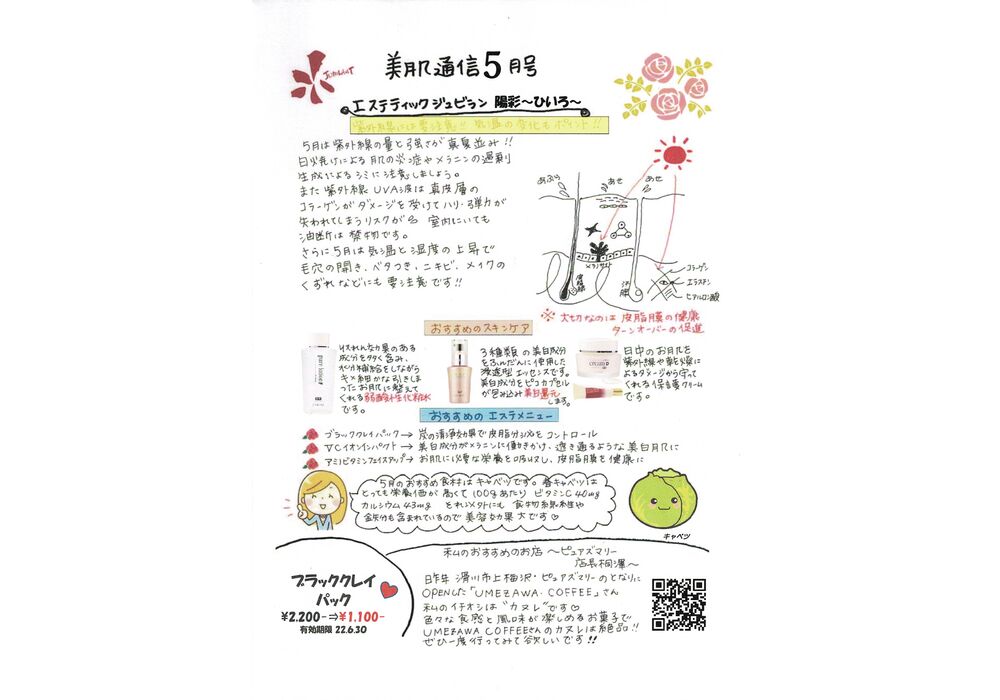 JUBILANT
美肌通信5月号
エステティックジュビラン 陽彩～ひいろ～
紫外線には要注意!! 気温の変化もポイント!!
5月は紫外線の量と強さが真夏並み!!
日焼けによる肌の炎症やメラニンの過剰
生成によるシミに注意しましょう。
また紫外線UVA波は真皮層の
コラーゲンがダメージを受けてハリ・弾力が
失われてしまうリスクが 室内にいても
油断は禁物です。
さらに5月は気温と湿度の上昇で
毛穴の開き、ベタつき、ニキビ、メイクの
くずれなどにも要注意です!!
あぶら
あせ
あせ
メラノサイト
皮脂腺
汗腺
コラーゲン
エラスチン
ヒアルロン酸
※ 大切なのは 皮脂膜の健康
ターンオーバーの促進
おすすめのスキンケア
効果のある
成分を多く含み、
水分補給をしながら
キメ細かな引きしま
ったお肌に整えて
くれる弱酸性化粧水
です。
3種類の美白成分
をふんだんに使用した
浸透型エッセンスです。
美白成分をピコカプセル
が包み込み美白還元
します。
日中のお肌を
紫外線や乾燥に
よるダメージから守って
くれる保護クリーム
です。
おすすめのエステメニュー
ブラッククレイパック→ 炭の清浄効果で皮脂分泌をコントロール
VCイオンインパクト→ 美白成分がメラニンに働きかけ、透き通るような美白肌に
アミノビタミンフェイスアップ→ お肌に必要な栄養を吸収し、皮脂膜を健康に
5月のおすすめ食材はキャベツです。春キャベツは
とっても栄養価が高くて100gあたり ビタミンC 40mg
カルシウム43mg それ以外にも 食物繊維や
鉄分も含まれているので美容効果大です♡
キャベツ
ブラッククレイ
パック
¥2.200-⇒¥1.100-
有効期限 22.6.30
私のおすすめのお店 ～ピュアズマリー
店長桐澤～
昨年 滑川市上梅沢・ピュアズマリーのとなりに
OPENした「UMEZAWA・COFFEE」さん
私のイチオシは"カヌレ"です♡
色々な食感と風味が楽しめるお菓子で
UMEZAWA COFFEEさんのカヌレは絶品!!
ぜひ一度行ってみて欲しいです!!